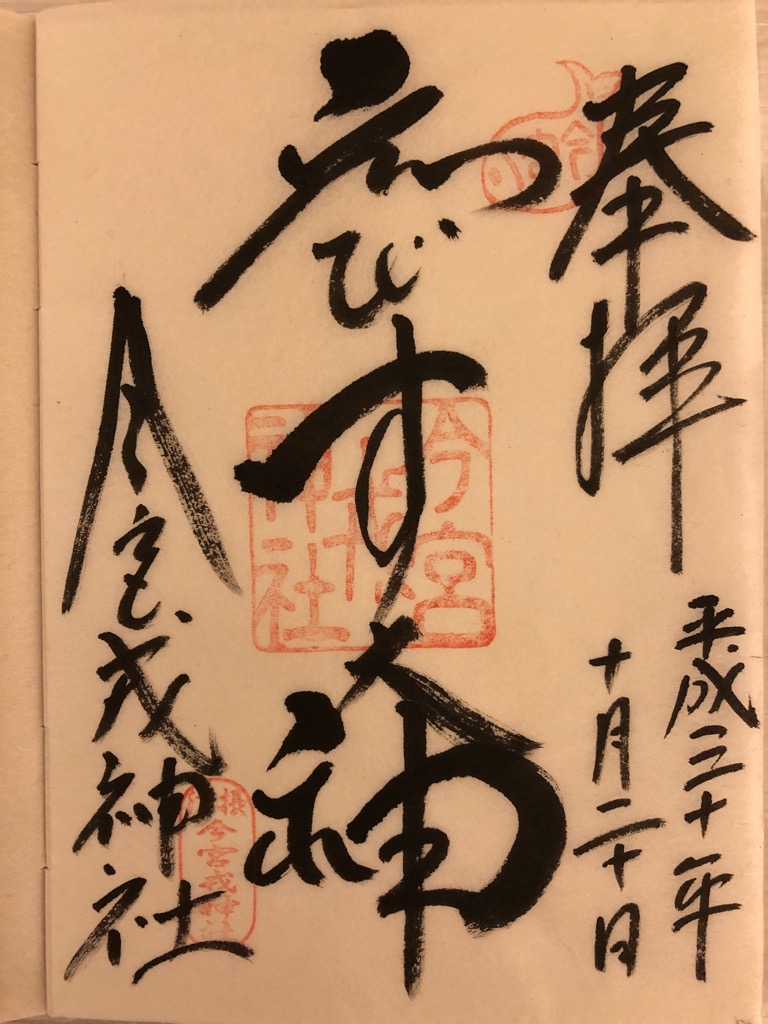 奉拝
平成三十年
十月二十日
えびす大神
今宮戎神社
今宮戎神社
今宮戎神社